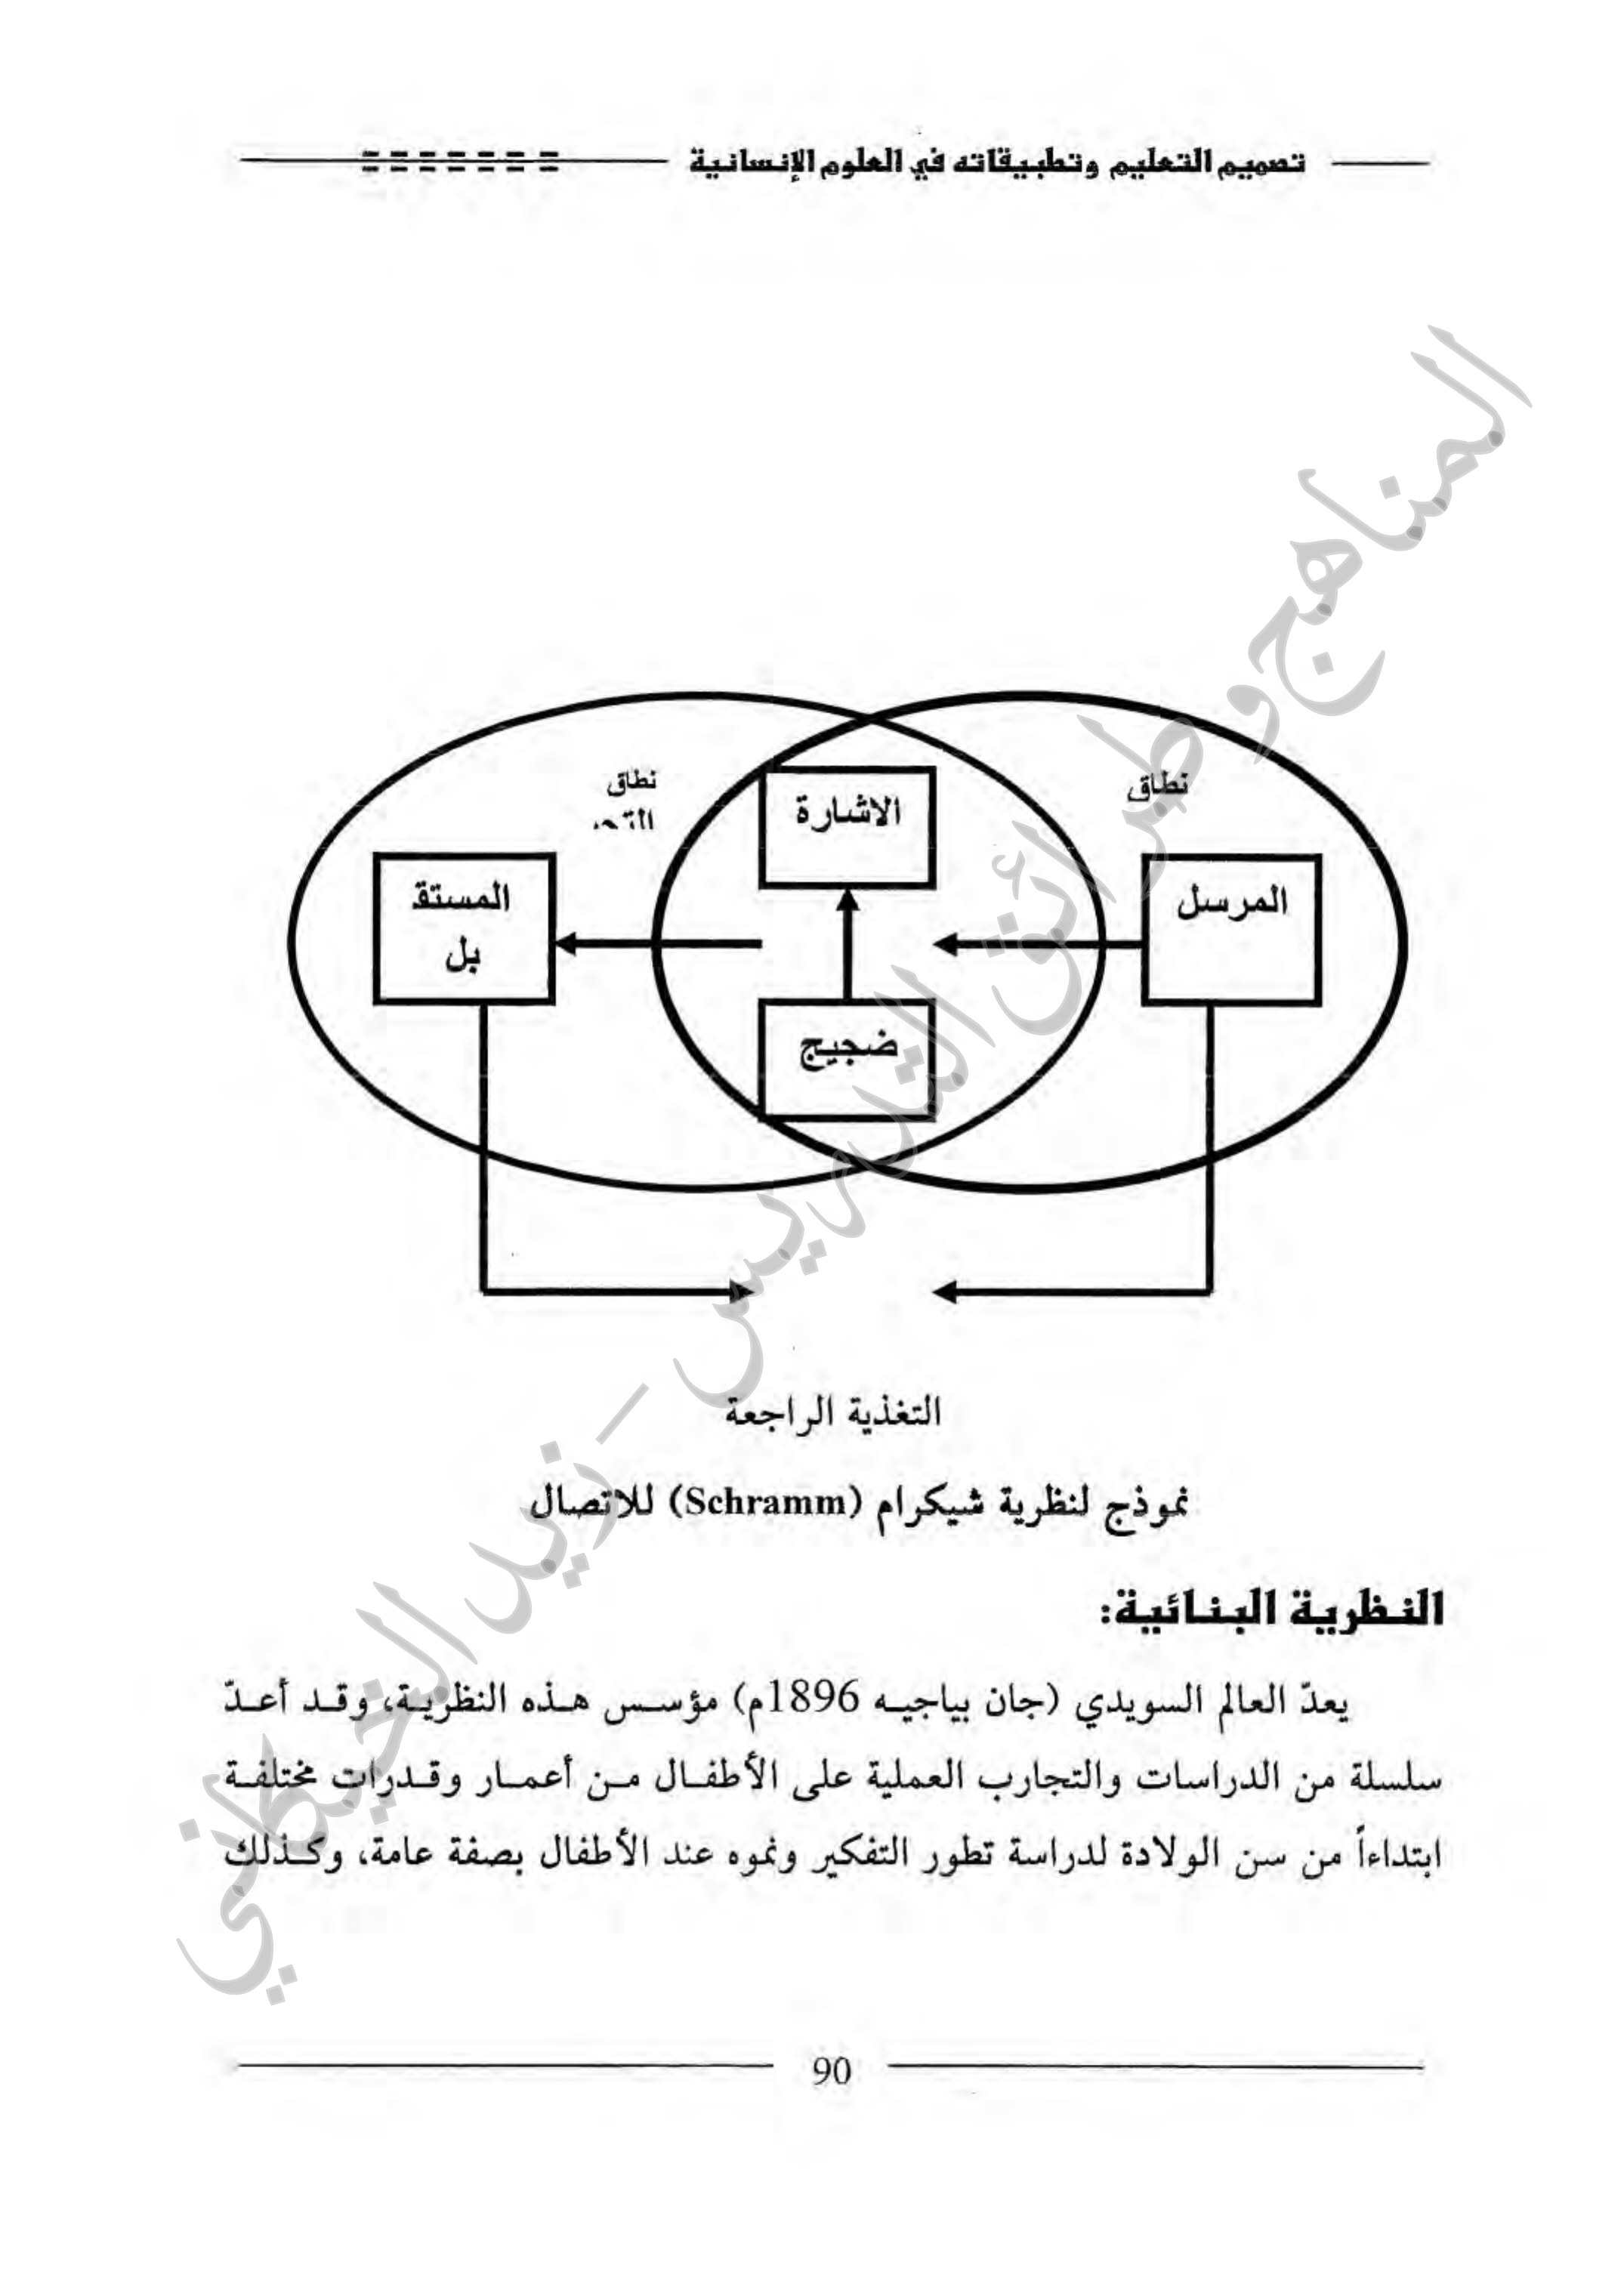 تصميم التعليم وتطبيقاته في العلوم الإنسانية
نطاق
نطاق
الاشارة
المرسل
المستق
بل
ضجيج
التغذية الراجعة
نموذج لنظرية شيكرام (Schramm) للاتصال
النظرية البنائية:
يعدّ العالم السويدي (جان بياجيه 1896م) مؤسس هذه النظرية، وقد أعدّ
سلسلة من الدراسات والتجارب العملية على الأطفال من أعمار وقدرات مختلفة
ابتداءاً من سن الولادة لدراسة تطور التفكير ونموه عند الأطفال بصفة عامة، وكذلك
90
المناهج وطرائق التدريس - زيد الخيكاني